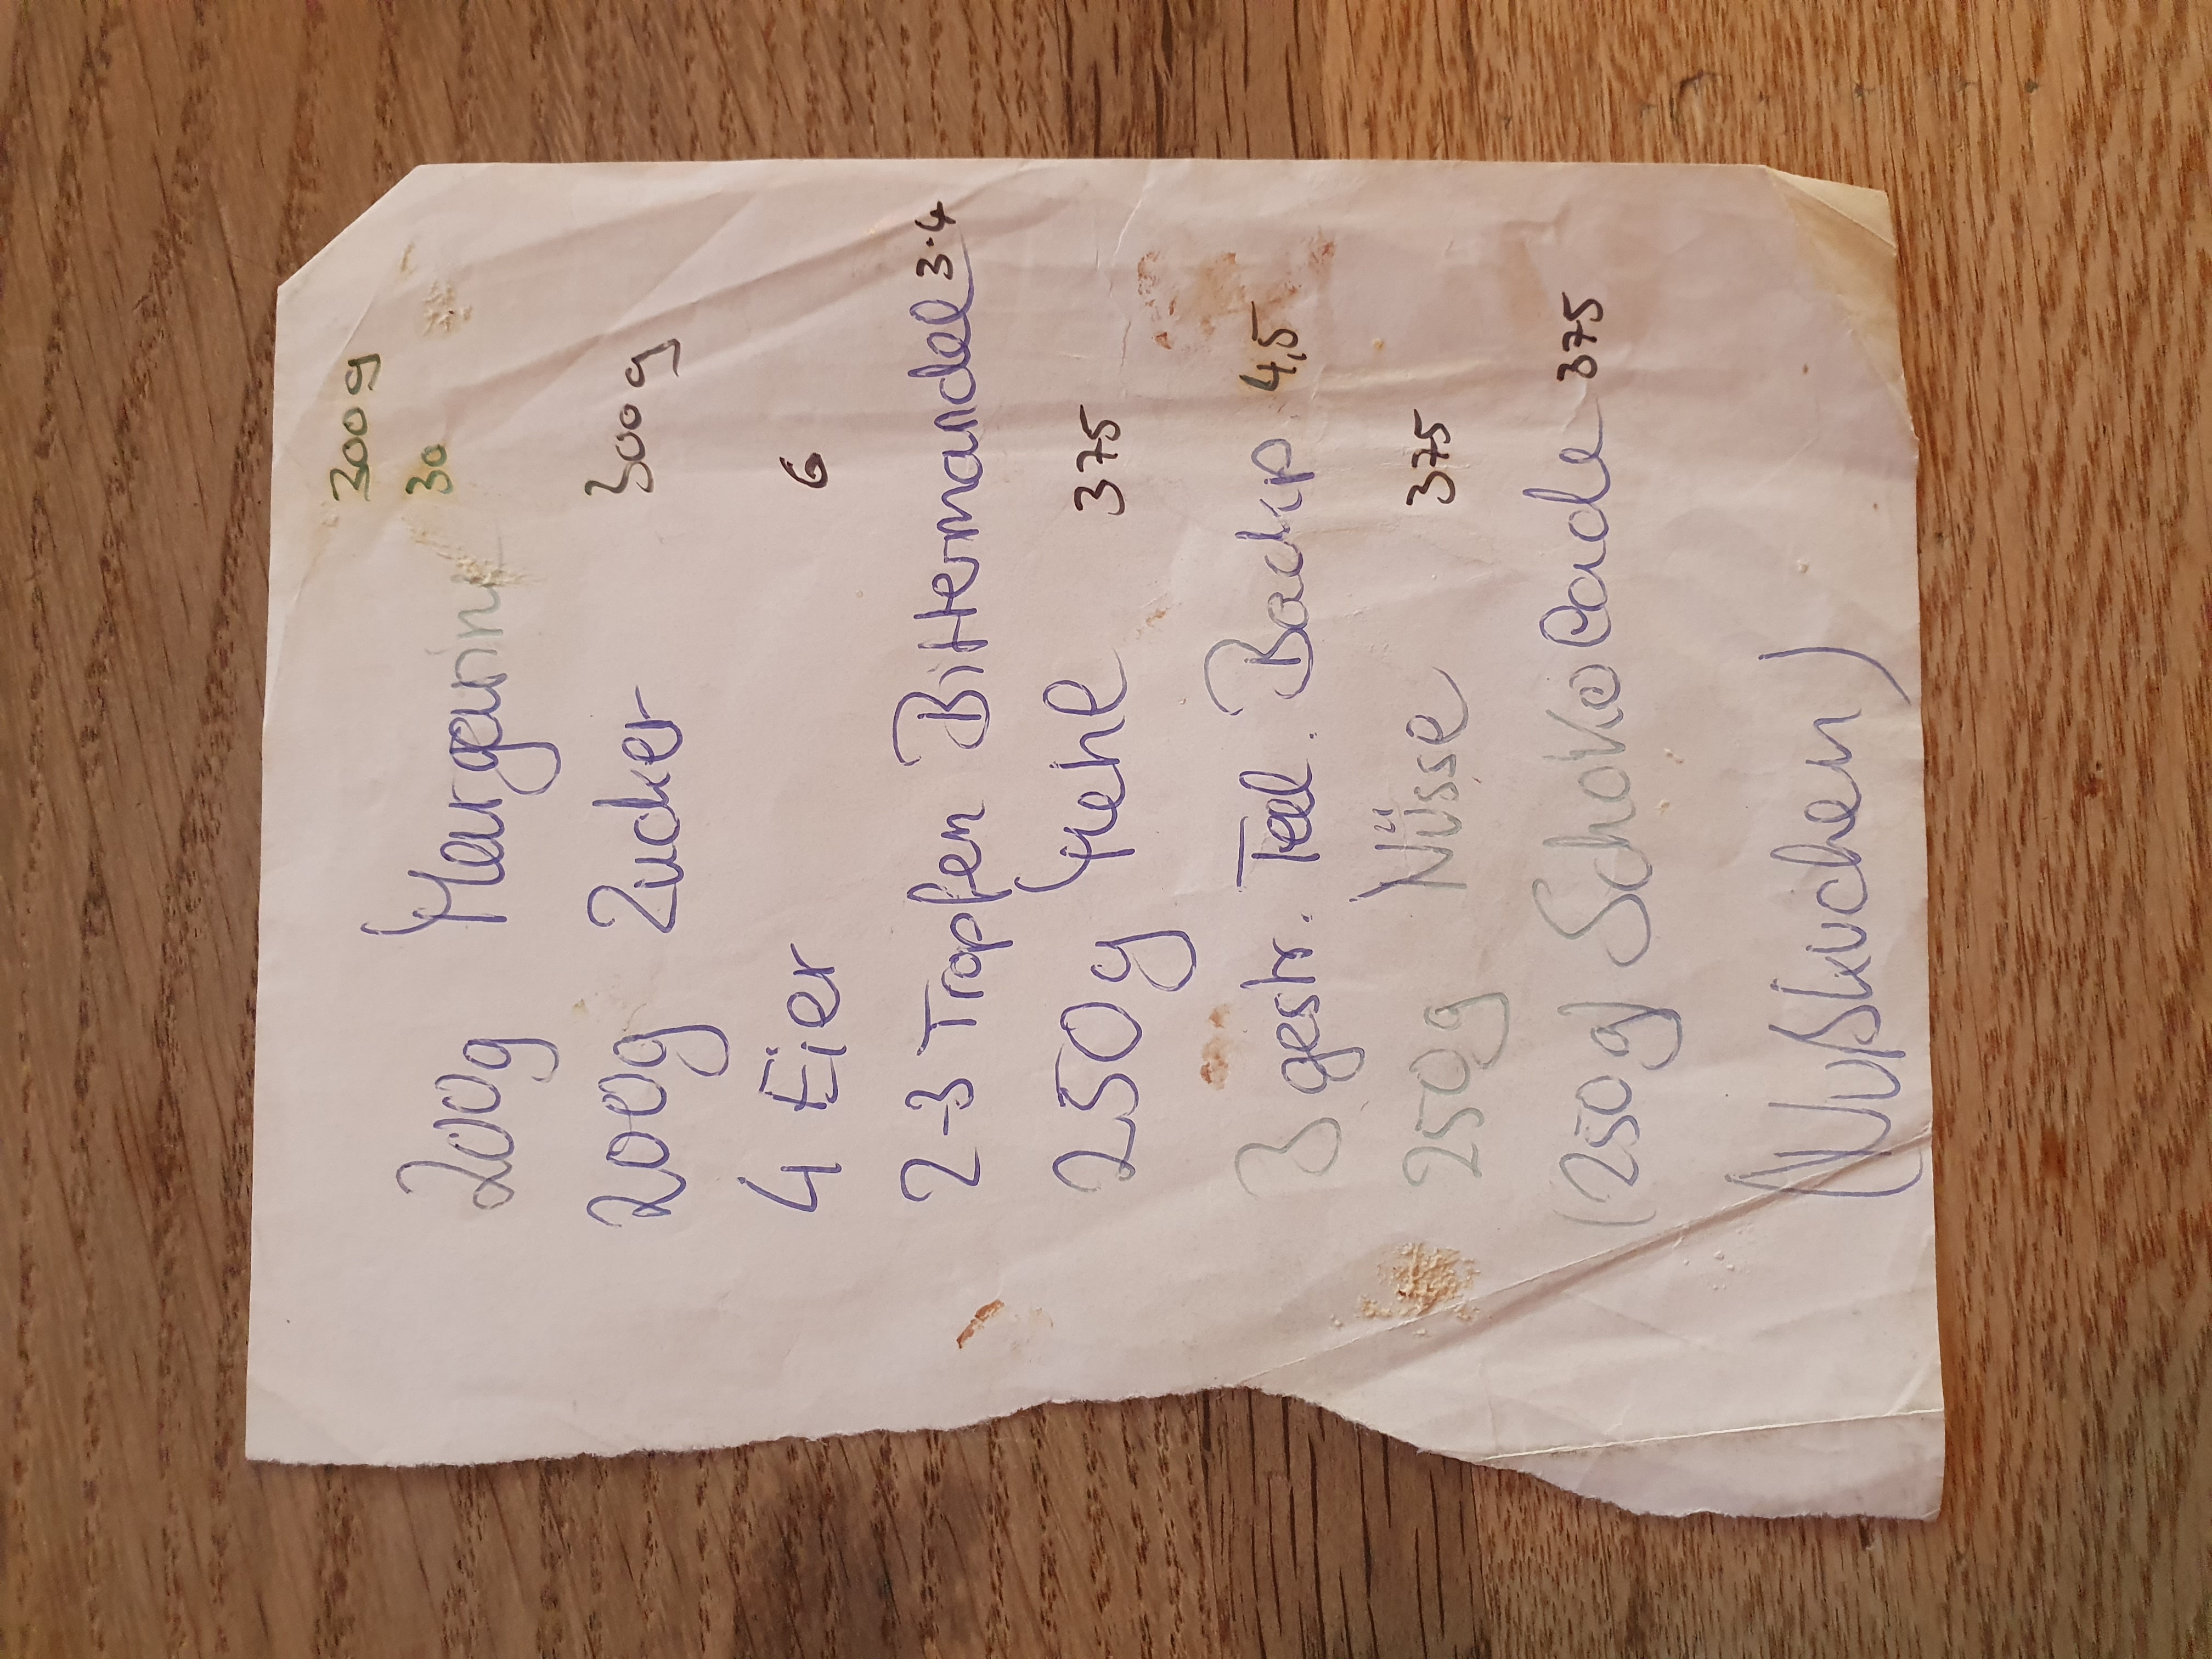 300g
200g Margarine 30
200g Zucker 300g
4 Eier 6
2-3 Tropfen Bittermandel 3-4
250g Mehl 375
3 gestr. Teel. Backp. 4,5
250g Nüsse 375
(250g) Schokolade 375
(Nußkuchen)